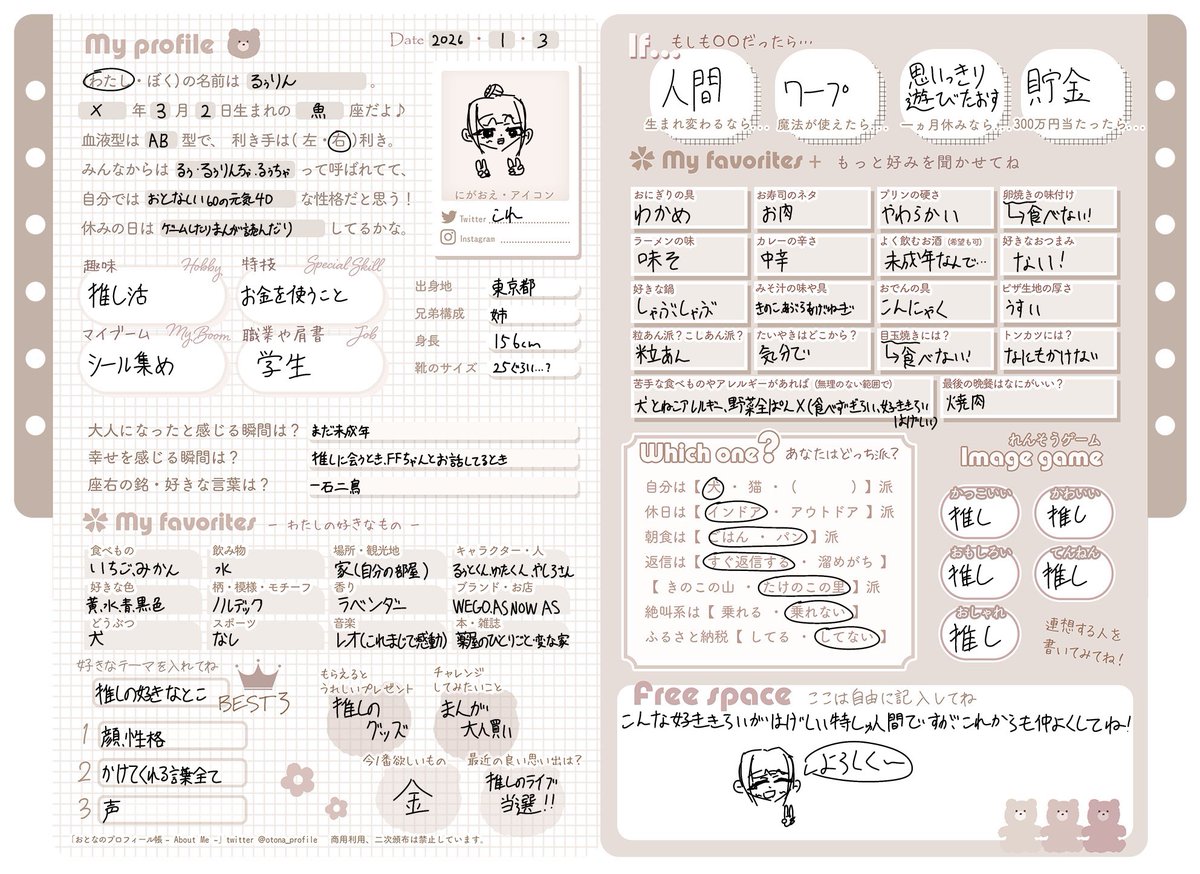 My profile
Date 2026・1・3
(わたし・ぼく)の名前は るぅりん 。
× 年 3 月 2 日生まれの 魚 座だよ♪
血液型は AB 型で、 利き手は(左・右)利き。
みんなからは るぅ・るぅりんちゃ・るぅちゃ って呼ばれてて、
自分では おとなしい60の元気40 な性格だと思う！
休みの日は ゲームしたりまんが読んだり してるかな。
にがおえ・アイコン
Twitter これ
Instagram
趣味 Hobby
推し活
特技 Special Skill
お金を使うこと
マイブーム My Boom
シール集め
職業や肩書 Job
学生
出身地 東京都
兄弟構成 姉
身長 156cm
靴のサイズ 25ぐらい…?
大人になったと感じる瞬間は？ まだ未成年
幸せを感じる瞬間は？ 推しに会うとき、FFちゃんとお話してるとき
座右の銘・好きな言葉は？ 一石二鳥
My favorites － わたしの好きなもの －
食べもの
いちご、みかん
飲み物
水
場所・観光地
家(自分の部屋)
キャラクター・人
るぅとくん、ゆたくん、やしろさん
好きな色
黄、水、青、黒色
柄・模様・モチーフ
ノルディック
香り
ラベンダー
ブランド・お店
WEGO、AS NOW AS
どうぶつ
犬
スポーツ
なし
音楽
レオ(これまじで感動)
本・雑誌
薬屋のひとりごと、変な家
好きなテーマを入れてね
推しの好きなとこ
BEST3
1 顔、性格
2 かけてくれる言葉全て
3 声
もらえると
うれしいプレゼント
推しの
グッズ
チャレンジ
してみたいこと
まんが
大人買い
今1番欲しいもの
金
最近の良い思い出は？
推しのライブ
当選!!
「おとなのプロフィール帳 - About Me -」twitter @otona_profile 商用利用、二次頒布は禁止しています。
If... もしも〇〇だったら…
人間
生まれ変わるなら…
ワープ
魔法が使えたら…
思いっきり
遊びたおす
一ヵ月休みなら…
貯金
300万円当たったら…
My favorites + もっと好みを聞かせてね
おにぎりの具
わかめ
お寿司のネタ
お肉
プリンの硬さ
やわらかい
卵焼きの味付け
食べない!
ラーメンの味
味そ
カレーの辛さ
中辛
よく飲むお酒(希望も可)
未成年なんで…
好きなおつまみ
ない!
好きな鍋
しゃぶしゃぶ
みそ汁の味や具
きのこあぶらあげねぎ
おでんの具
こんにゃく
ピザ生地の厚さ
うすい
粒あん派？こしあん派？
粒あん
たいやきはどこから？
気分で
目玉焼きには？
食べない!
トンカツには？
なにもかけない
苦手な食べものやアレルギーがあれば(無理のない範囲で)
犬とねこアレルギー、野菜全ぱん×(食べずぎらい、好ききらい
はげしい)
最後の晩餐はなにがいい？
焼肉
Which one? あなたはどっち派？
自分は【 犬 ・ 猫 ・ ( ) 】派
休日は【 インドア ・ アウトドア 】派
朝食は【 ごはん ・ パン 】派
返信は【 すぐ返信する ・ 溜めがち 】
【 きのこの山 ・ たけのこの里 】派
絶叫系は【 乗れる ・ 乗れない 】
ふるさと納税【 してる ・ してない 】
れんそうゲーム
Image game
かっこいい
推し
かわいい
推し
おもしろい
推し
てんねん
推し
おしゃれ
推し
連想する人を
書いてみてね！
Free space ここは自由に記入してね
こんな好ききらいがはげしい特しゅ人間ですがこれからも仲よくしてね!
よろしく～